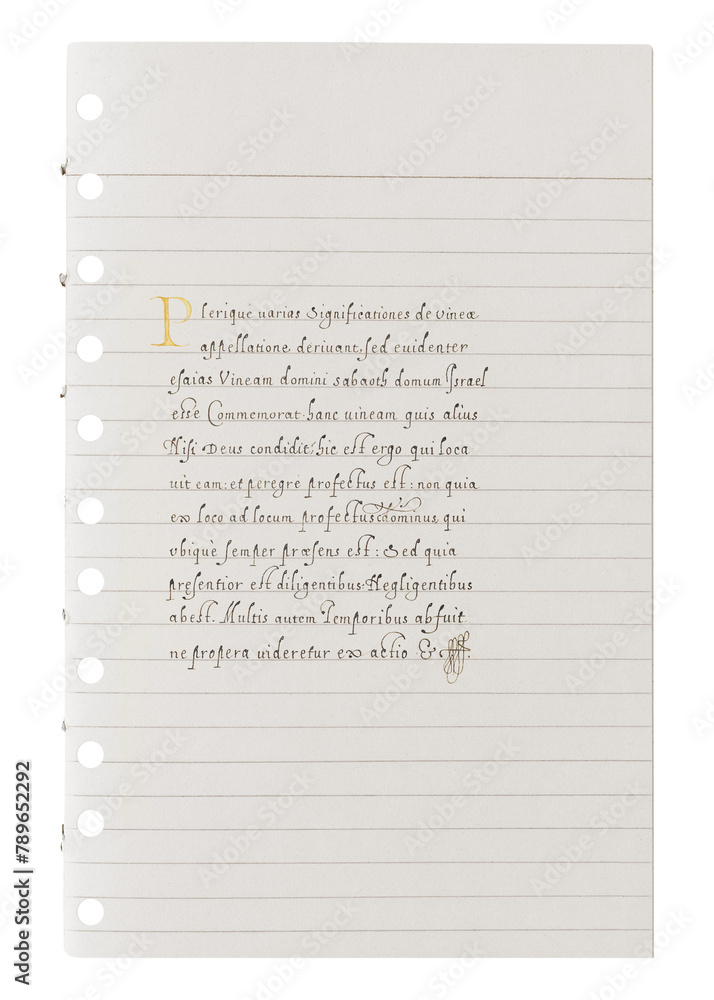 Plerique uarias Significationes de vineæ
appellatione deriuant, sed euidenter
esaias Vineam domini sabaoth domum Israel
esse Commemorat. hanc uineam quis alius
Nisi Deus condidit; hic est ergo qui loca
uit eam: et peregre profectus est: non quia
ex loco ad locum profectus dominus qui
vbique semper præsens est: Sed quia
presentior est diligentibus. Negligentibus
abest. Multis autem Temporibus abfuit
ne propera uideretur exactio &
Adobe Stock | #789652292